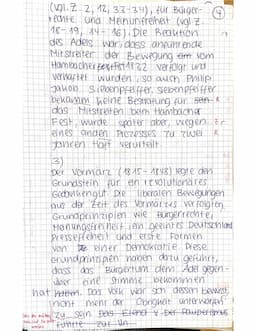 (vgl. Z. 2, 12, 33-34), für Bürger-
rechte und Meinunsfreiheit (vgl. Z.
18-19, 14-16). Die Reaktion
des Adels war, dass anführende
Mitstreiter der Bewegung vom
Hambacher Fest 1832 verfolgt und
verhaftet wurden, so auch Philip
Jakob Siebenpfeiffer. Siebenpfeiffer
bekam keine Bestrafung für sein
das Mitstreiten beim Hambacher
Fest, wurde später aber, wegen
eines anden Prozesses zu zwei
Jahren Haft verurteilt.
3)
Der Vormärz (1815-1848) legte den
Grundstein für ein revolutionäres
Gedankengut. Die liberalen Bewegungen
aus der Zeit des Vormärzes verfolgten
Grundprinzipien wie Bürgerrechte,
Meinungsfreiheit, ein geeintes Deutschland,
Pressefreiheit und erste Formen
von einer Demokratie. Diese
Grundprinzipien haben dazu geführt,
dass das Bürgertum dem Adel gegen-
über eine Stimme bekommen
hat. Das Volk war sich dessen bewusst,
nicht mehr der Obrigkeit unterworfen
zu sein. Das Elend des Pauperismus
führte zur